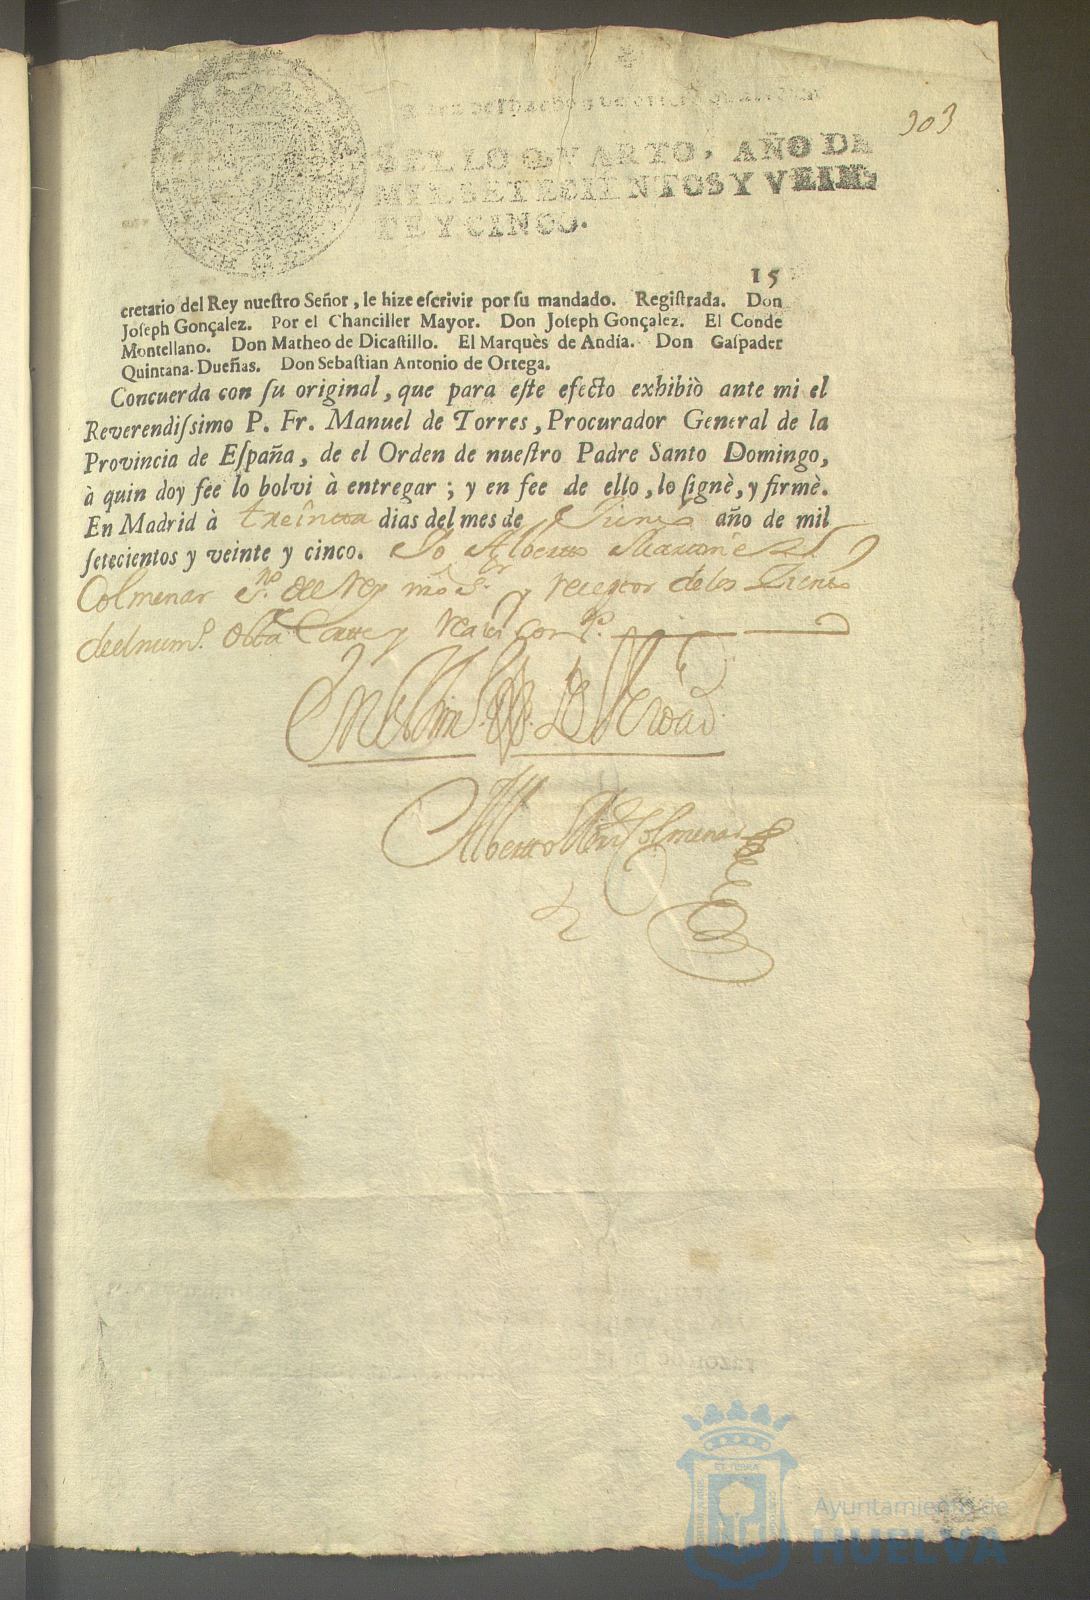 303
SELLO QVARTO, AÑO DE
MIL SETECIENTOS Y VEIN-
TE Y CINCO.
15
cretario del Rey nueſtro Señor, le hize eſcrivir por ſu mandado. Regiſtrada. Don
Joſeph Gonçalez. Por el Chanciller Mayor. Don Joſeph Gonçalez. El Conde
Montellano. Don Matheo de Dicaſtillo. El Marquès de Andía. Don Gaſpader
Quintana-Dueñas. Don Sebaſtian Antonio de Ortega.
Concuerda con ſu original, que para eſte efecto exhibiò ante mi el
Reverendiſsimo P. Fr. Manuel de Torres, Procurador General de la
Provincia de Eſpaña, de el Orden de nueſtro Padre Santo Domingo,
à quin doy fee lo bolvi à entregar; y en fee de ello, lo ſignè, y firmè.
En Madrid à treinta dias del mes de año de mil
ſetecientos y veinte y cinco. Yo Alberto Martinez
Colmenar SSno. del Rey nro Sr. y receptor de los
del numo. Corte y
En testim de Verdad
Alberto Mrz Colmenar
Ayuntamiento de
HUELVA